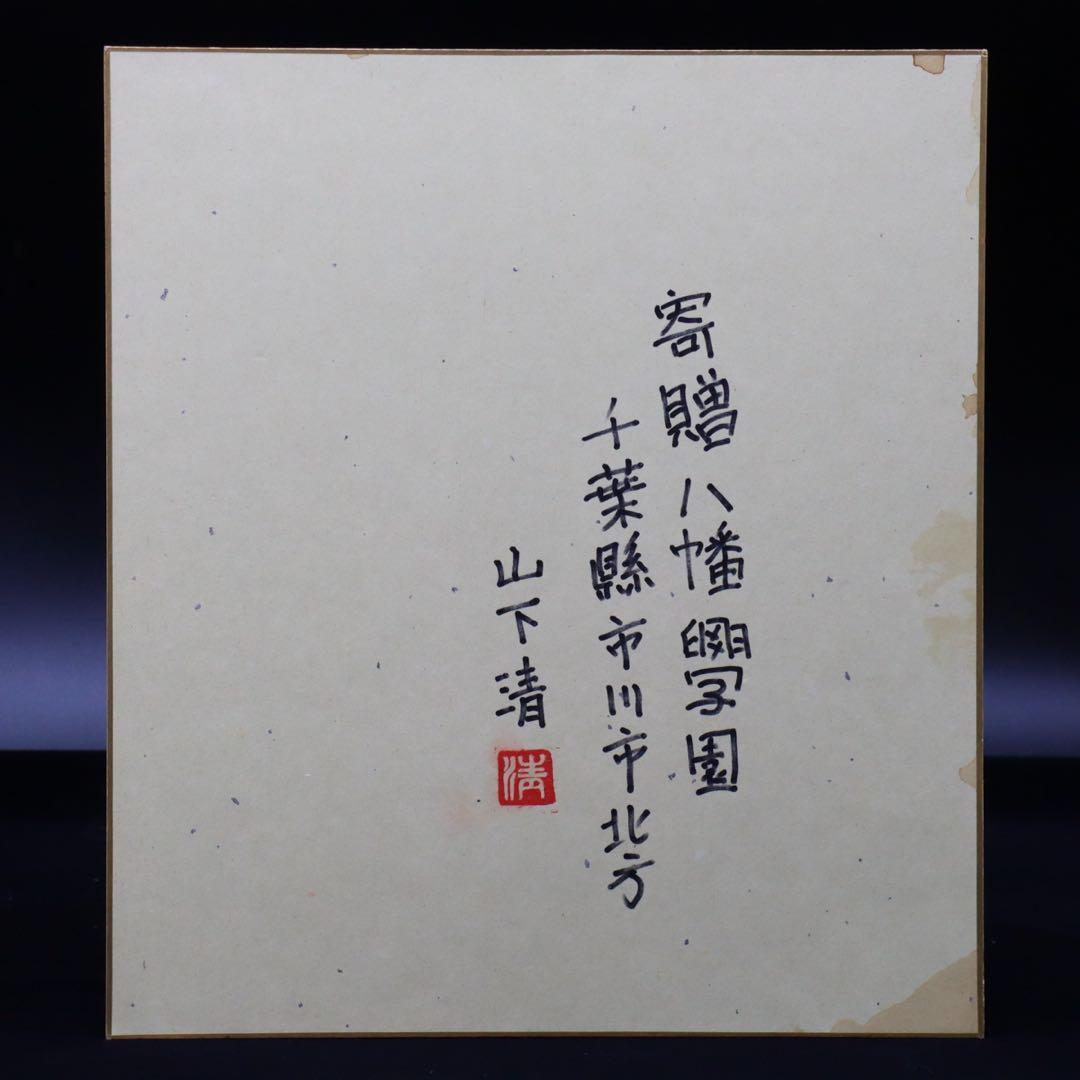 寄贈八幡學園
千葉縣市川市北方
山下清
清